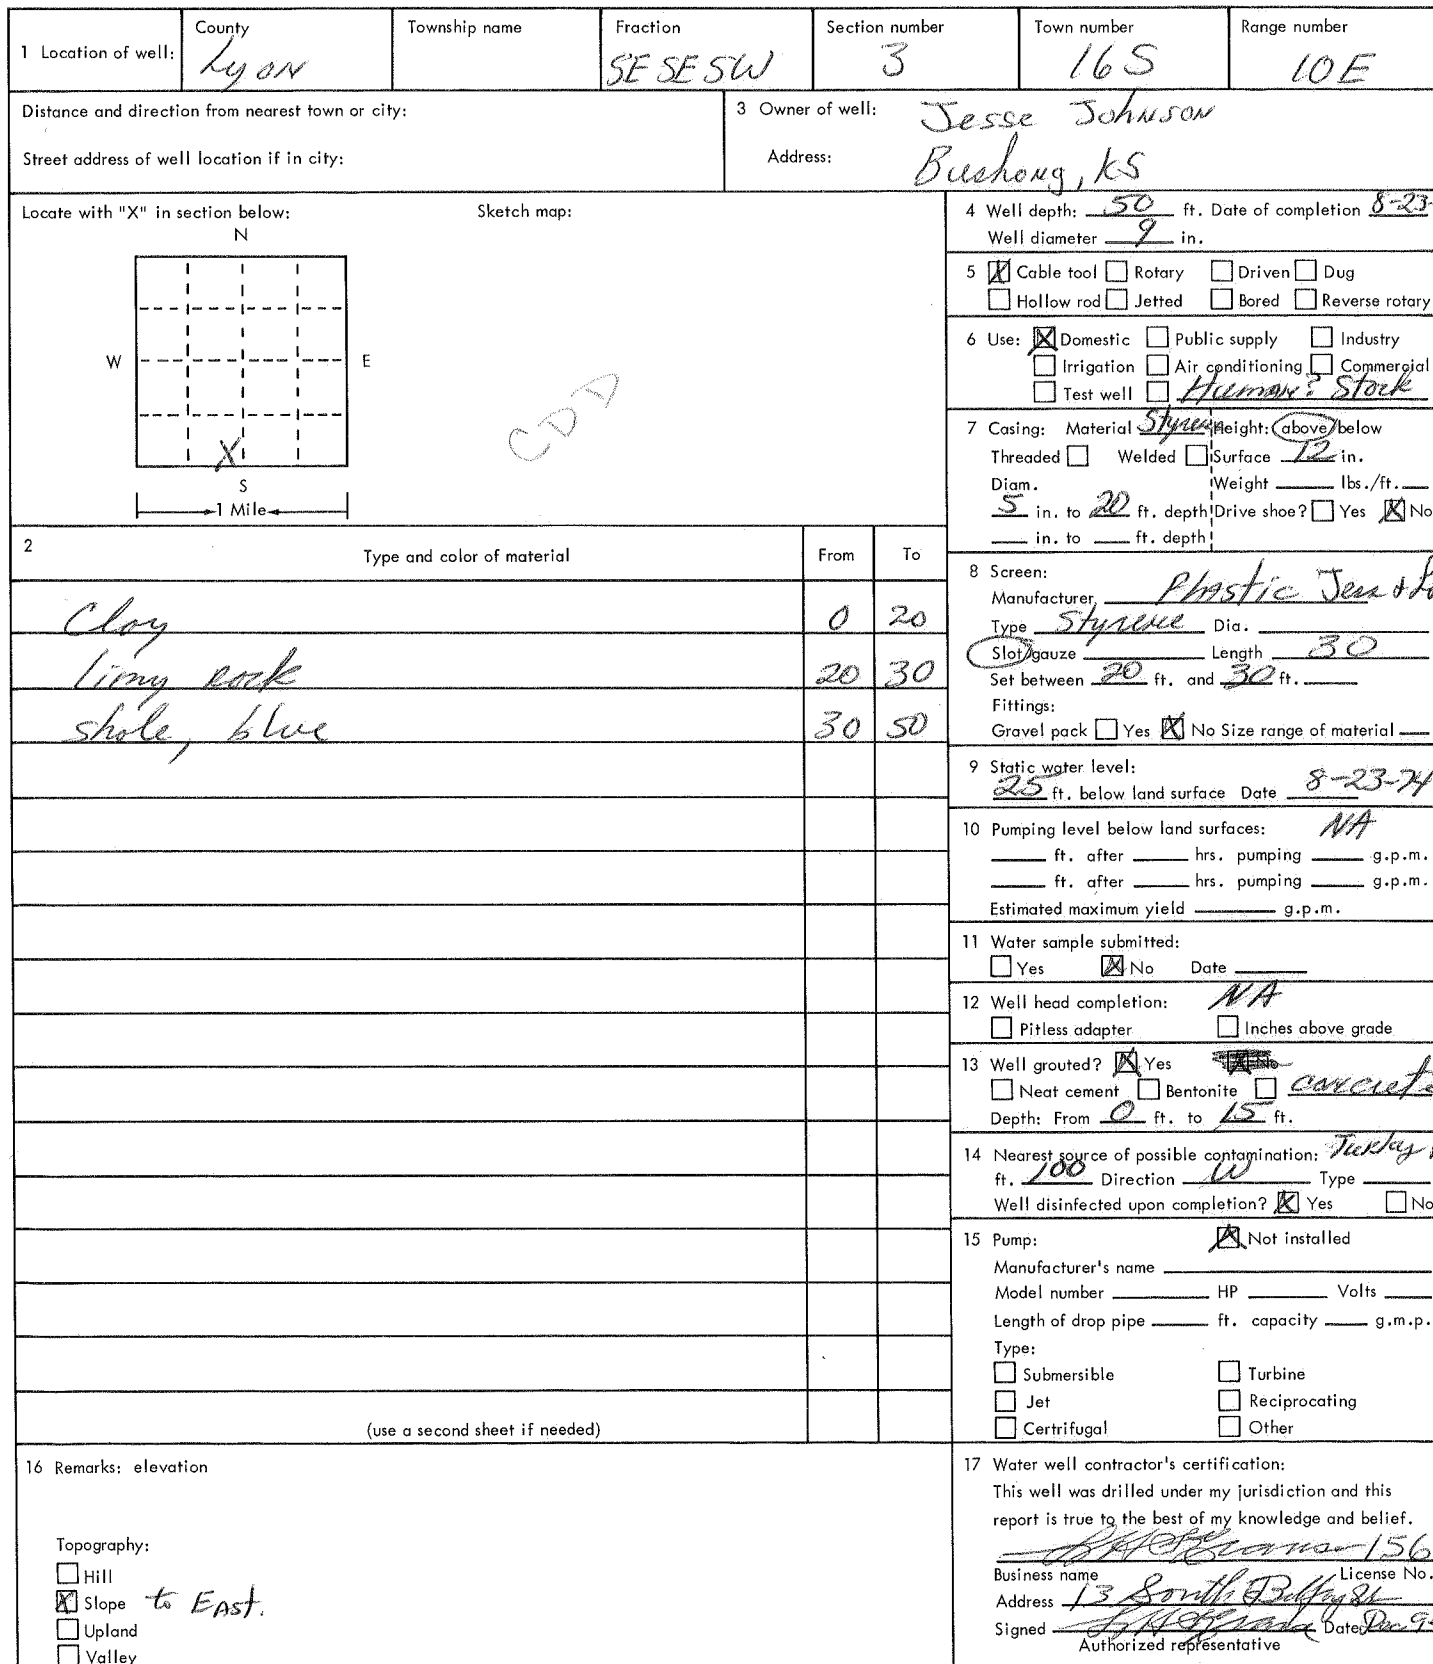 1 Location of well: County Lyon Township name Fraction SE SE SW Section number 3 Town number 16S Range number 10E
Distance and direction from nearest town or city:
Street address of well location if in city:
3 Owner of well: Jesse Johnson
Address: Bushong, KS
Locate with "X" in section below: Sketch map:
N
W E
X
S
1 Mile
CDD
2 Type and color of material From To
Clay 0 20
limy rock 20 30
shale, blue 30 50
(use a second sheet if needed)
4 Well depth: 50 ft. Date of completion 8-23-
Well diameter 9 in.
5 X Cable tool Rotary Driven Dug
Hollow rod Jetted Bored Reverse rotary
6 Use: X Domestic Public supply Industry
Irrigation Air conditioning Commercial
Test well Human? Stock
7 Casing: Material Styrene Height: above/below
Threaded Welded Surface 12 in.
Diam. Weight lbs./ft.
5 in. to 20 ft. depth Drive shoe? Yes X No
in. to ft. depth
8 Screen:
Manufacturer Plastic Jess &
Type Styrene Dia.
Slot/gauze Length 30
Set between 20 ft. and 30 ft.
Fittings:
Gravel pack Yes X No Size range of material
9 Static water level:
25 ft. below land surface Date 8-23-74
10 Pumping level below land surfaces: NA
ft. after hrs. pumping g.p.m.
ft. after hrs. pumping g.p.m.
Estimated maximum yield g.p.m.
11 Water sample submitted:
Yes X No Date
12 Well head completion: NA
Pitless adapter Inches above grade
13 Well grouted? X Yes X No
Neat cement Bentonite concrete
Depth: From 0 ft. to 15 ft.
14 Nearest source of possible contamination: Turkey
ft. 100 Direction W Type
Well disinfected upon completion? X Yes No
15 Pump: X Not installed
Manufacturer's name
Model number HP Volts
Length of drop pipe ft. capacity g.m.p.
Type:
Submersible Turbine
Jet Reciprocating
Certrifugal Other
16 Remarks: elevation
Topography:
Hill
X Slope to East.
Upland
Valley
17 Water well contractor's certification:
This well was drilled under my jurisdiction and this
report is true to the best of my knowledge and belief.
156
Business name License No.
Address 13 South
Signed Date Dec 9
Authorized representative